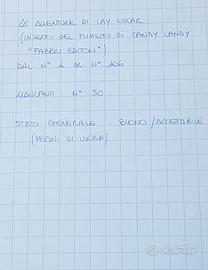 LE AVVENTURE DI LADY OSCAR
(INSERTO DEL FUMETTO DI CANDY CANDY
"FABBRI EDITORI")
DAL N° 1 AL N° 106
MANCANO N° 50
STATO GENERALE BUONO/ACCETTABILE
(SEGNI DI USURA)
subito